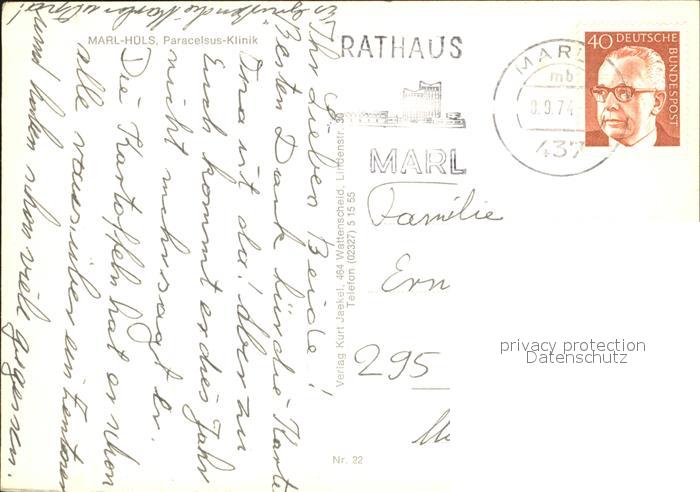 MARL-HÜLS, Paracelsus-Klinik
Ihr Lieben Beide!
Besten Dank für die Karte
Ina ist da! aber zu
Euch kommt er dies Jahr
nicht mehr sagt er.
Die Kartoffeln hat er schon
alle raus über ein Zentner
und haben schon viel gegessen.
Es grüßen die Marler
Verlag Kurt Jaekel, 464 Wattenscheid, Lindenstr. 30
Telefon (02327) 5 15 55
Nr. 22
RATHAUS
MARL
MARL
mb
9.74
437
40 DEUTSCHE
BUNDESPOST
Familie
Ern
295
privacy protection
Datenschutz